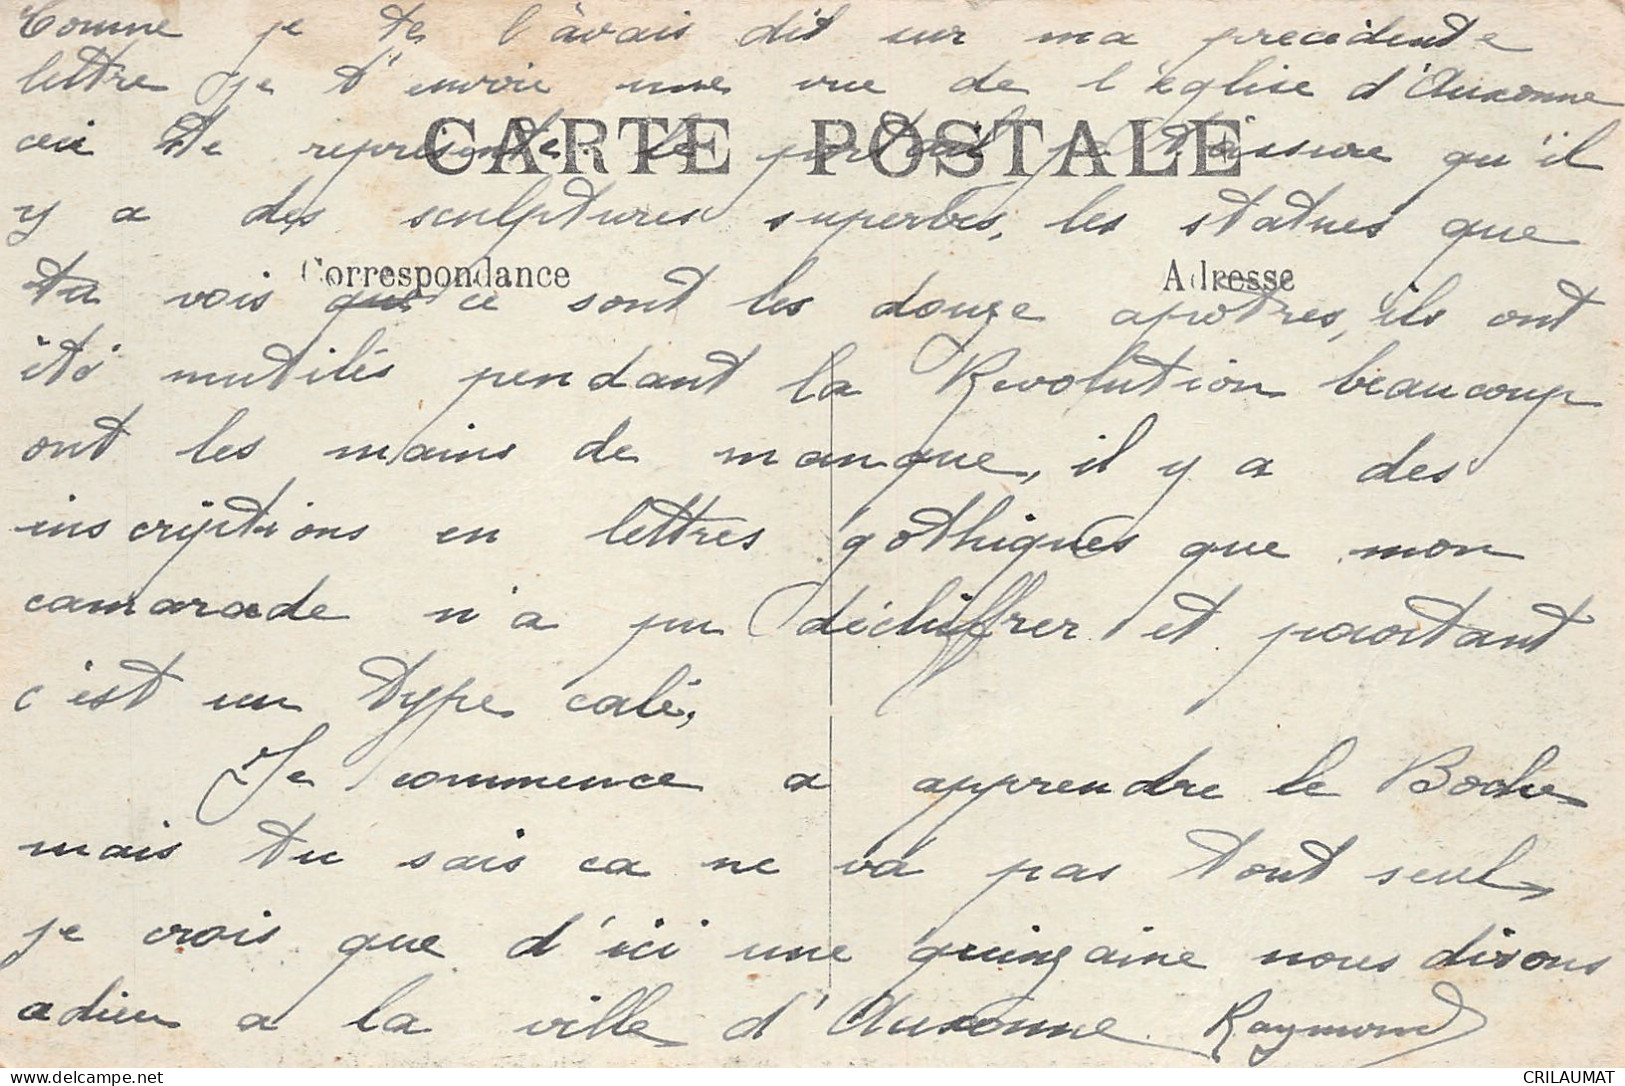 Comme je te l'avais dit sur ma precedente
lettre je t'envoie une vue de l'église d'Auxonne
CARTE POSTALE
ceci te représente le portail je t'assure qu'il
y a des sculptures superbes, les statues que
Correspondance
Adresse
tu vois que ce sont les douze apotres, ils ont
été mutilés pendant la Revolution beaucoup
ont les mains de manque, il y a des
inscriptions en lettres gothiques que mon
camarade n'a pu déchiffrer et pourtant
c'est un type calé,
Je commence a apprendre le Boche
mais tu sais ca ne va pas tout seul,
je crois que d'ici une quinzaine nous dirons
adieu a la ville d'Auxonne Raymond
CRILAUMAT